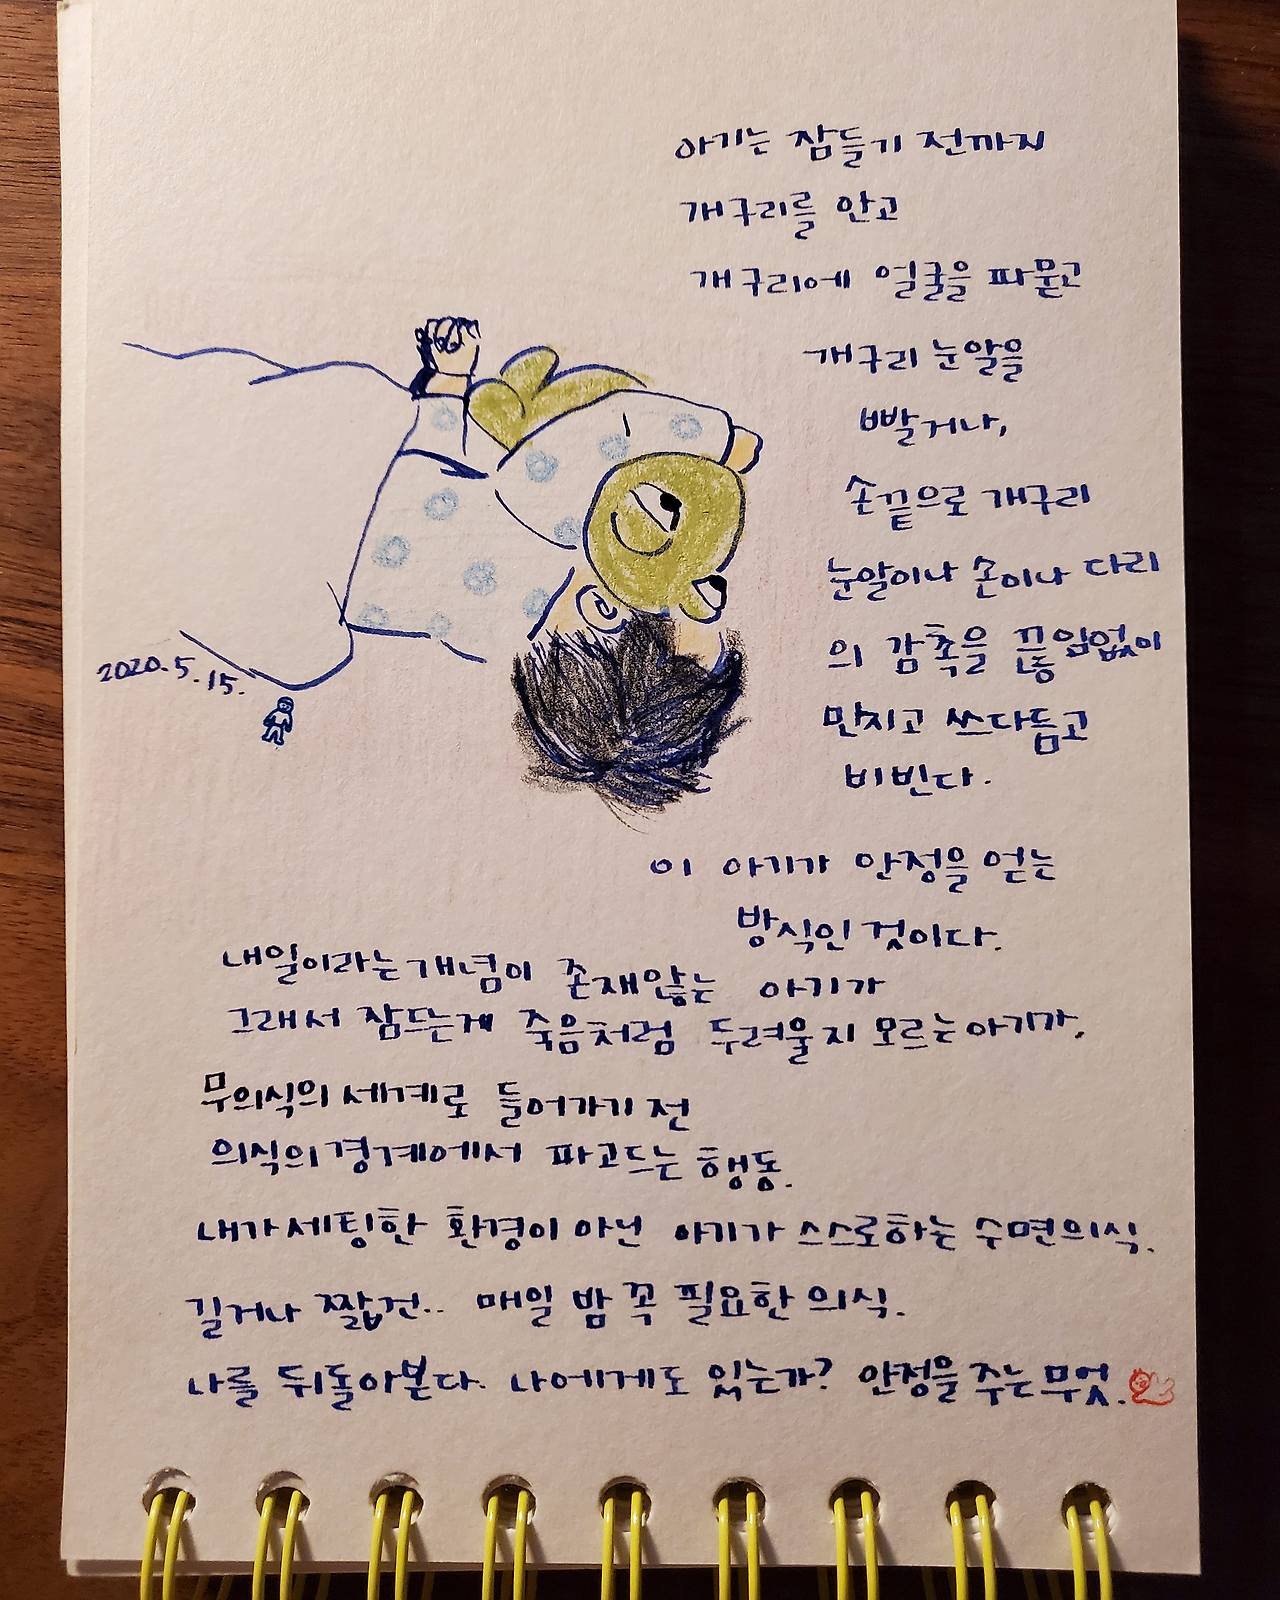 아기는 잠들기 전까지
개구리를 안고
개구리에 얼굴을 파묻고
개구리 눈알을
빨거나,
손끝으로 개구리
눈알이나 손이나 다리
의 감촉을 끊임없이
만지고 쓰다듬고
비빈다.
이 아기가 안정을 얻는
방식인 것이다.
내일이라는 개념이 존재않는 아기가
그래서 잠드는게 죽음처럼 두려울지 모르는 아기가,
무의식의 세계로 들어가기 전
의식의 경계에서 파고드는 행동.
내가 세팅한 환경이 아닌 아기가 스스로하는 수면의식.
길거나 짧건.. 매일 밤 꼭 필요한 의식.
나를 뒤돌아본다. 나에게도 있는가? 안정을 주는 무엇.
2020.5.15.